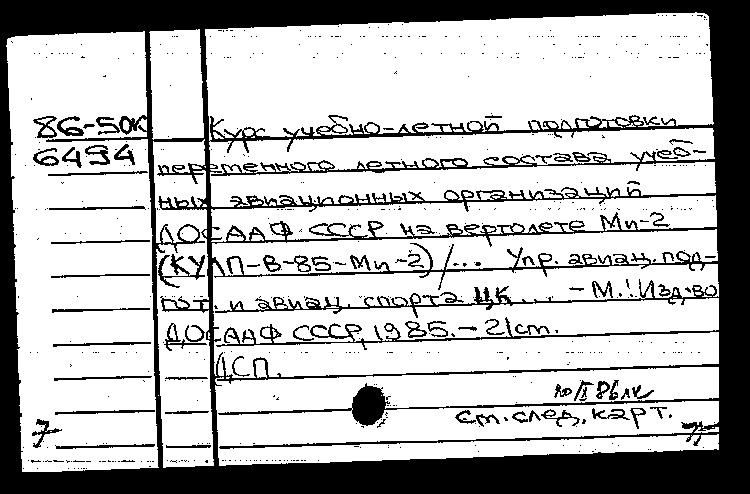 86-50к
6494
Курс учебно-летной подготовки
переменного летного состава учеб-
ных авиационных организаций
ДОСААФ СССР на вертолете Ми-2
(КУЛП-В-85-Ми-2)/... Упр. авиац. под-
гот. и авиац. спорта ЦК ... - М.: Изд-во
ДОСААФ СССР, 1985. - 21 ст.
ДСП.
ст. след. карт.
7